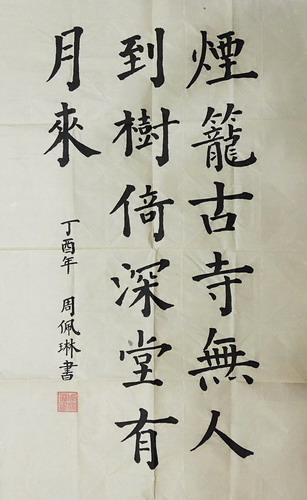 煙籠古寺無人
到樹倚深堂有
月來
丁酉年 周佩琳書